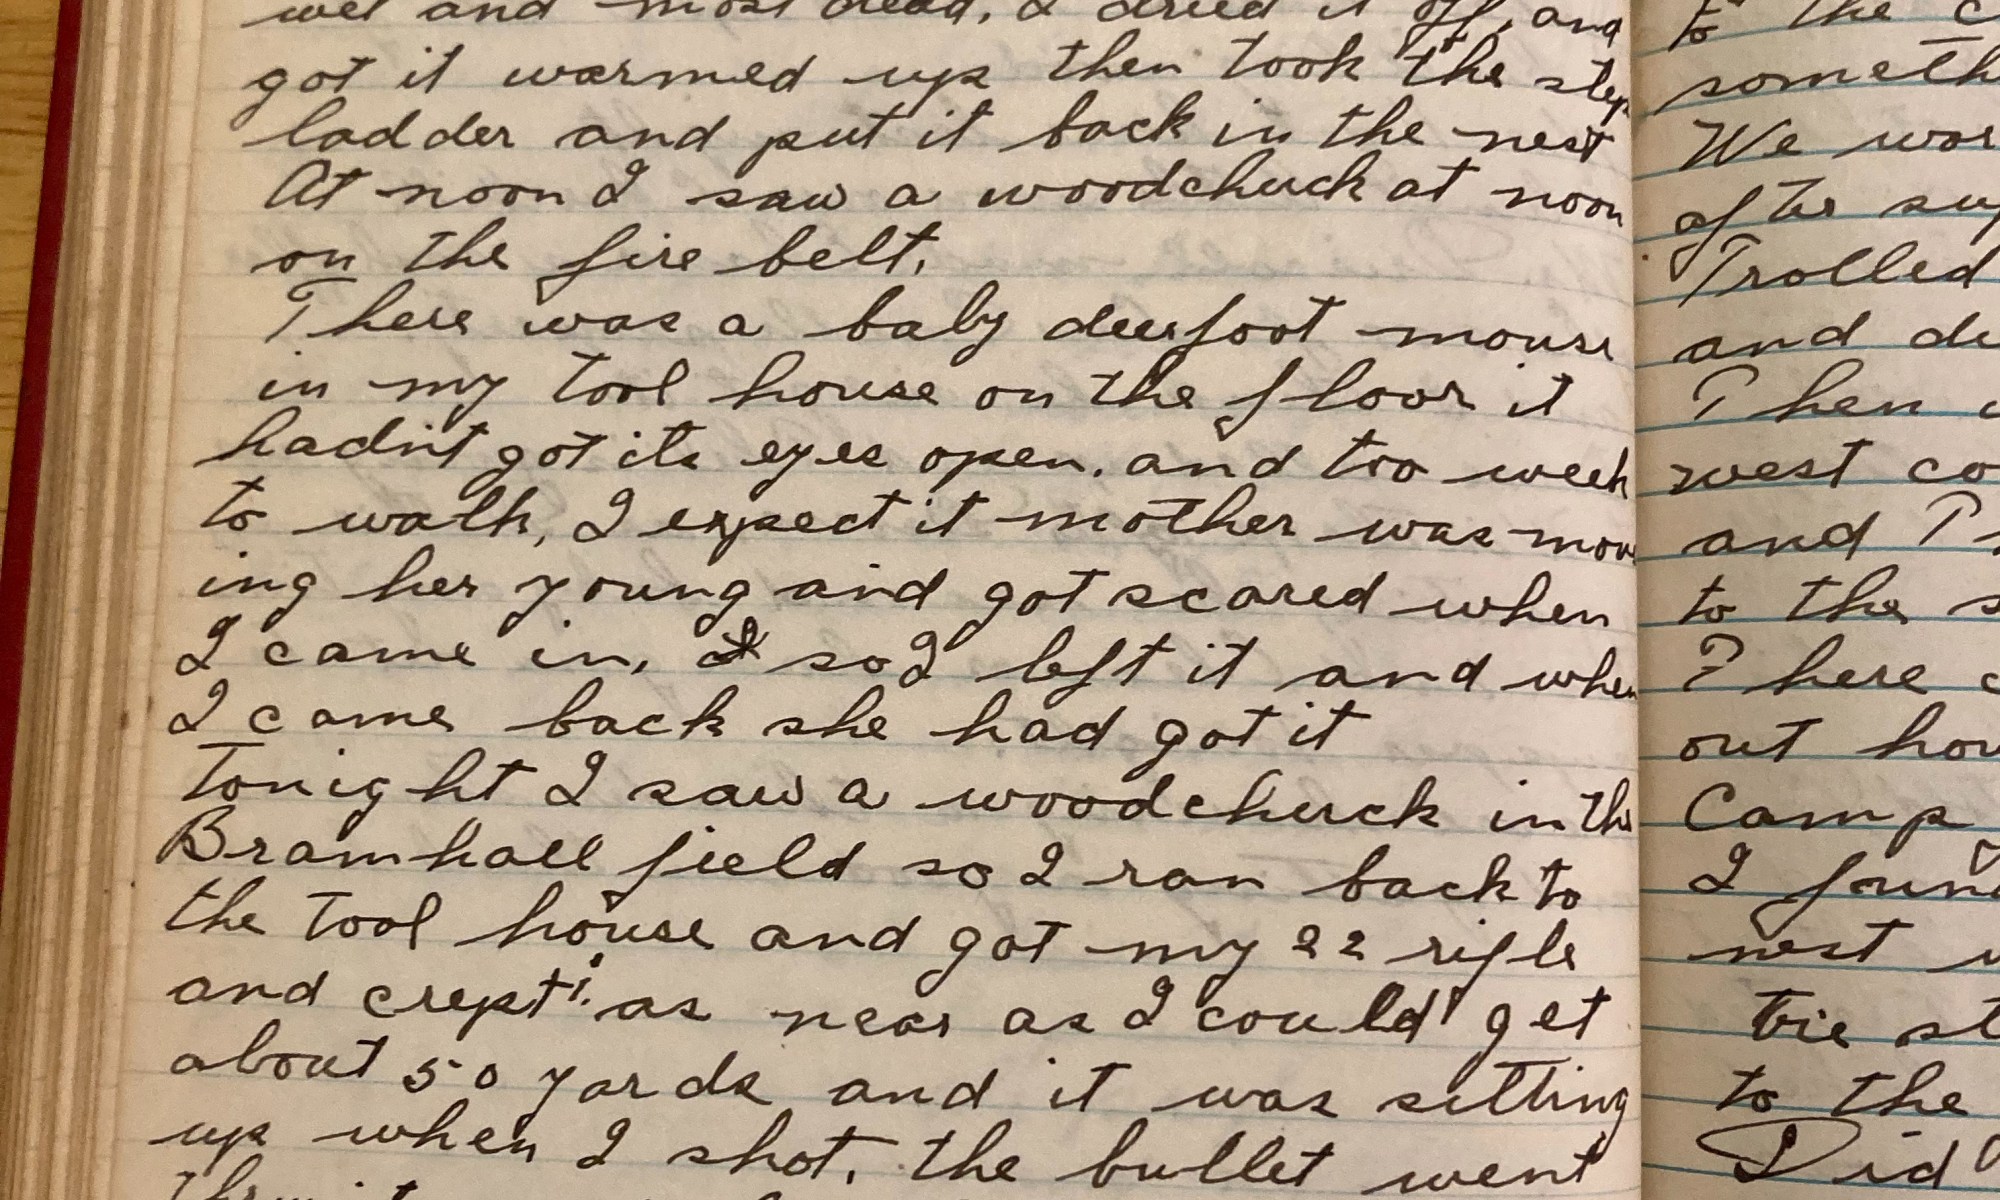 wet and most dead, I dried it off, and
got it warmed up then took the step
ladder and put it back in the nest
At noon I saw a woodchuck at noon
on the fire belt.
There was a baby deerfoot mouse
in my tool house on the floor it
hadn't got its eyes open. and too week
to walk, I expect it mother was mov
ing her young and got scared when
I came in, so I left it and when
I came back she had got it
Tonight I saw a woodchuck in the
Bramhall field so I ran back to
the tool house and got my 22 rifle
and crept as near as I could get
about 50 yards and it was setting
up when I shot, the bullet went
to the
someth
We wor
after sup
Trolled
and de
Then
west co
and
to the s
There
out hou
Camp
I foun
nest
tie st
to the
Did